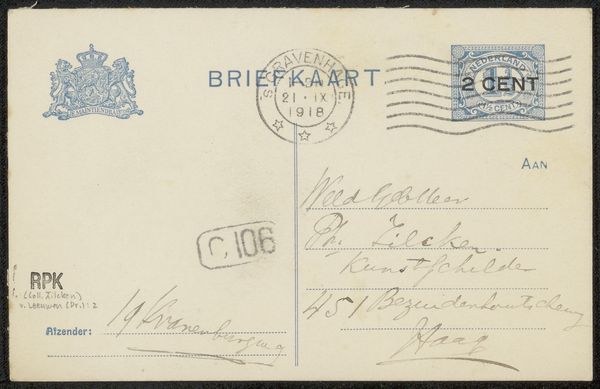 BRIEFKAART
JE MAINTIENDRAI
'S GRAVENHAGE
21 · IX
1918
NEDERLAND
2 CENT
AAN
WelEdelHeer
Ph. Zilcken
Kunstschilder
451 Bezuidenhoutscheweg
Haag
C 106
RPK
(Coll. Zilcken)
v. Leeuwen (Dr.) : 2
Afzender:
19 Kranenburgweg